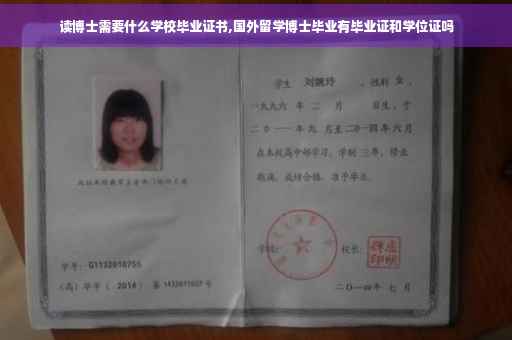 读博士需要什么学校毕业证书,国外留学博士毕业有毕业证和学位证吗
学生 刘婉玲 ，性别 女 ，
一九九六 年 二 月 日生，于
二〇一一 年 九 月至二〇一四年 六 月
在本校高中部学习，学制 三年，修业
期满，成绩合格，准予毕业。
学校: 校长:
学号: G1132010755
(高) 毕字 ( 2014 ) 第 1432011027 号
二〇一四年 七 月